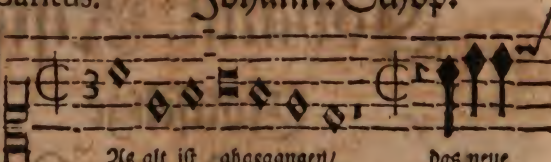 Johann: Schop.
3
As alt ist abgegangen/ das neue